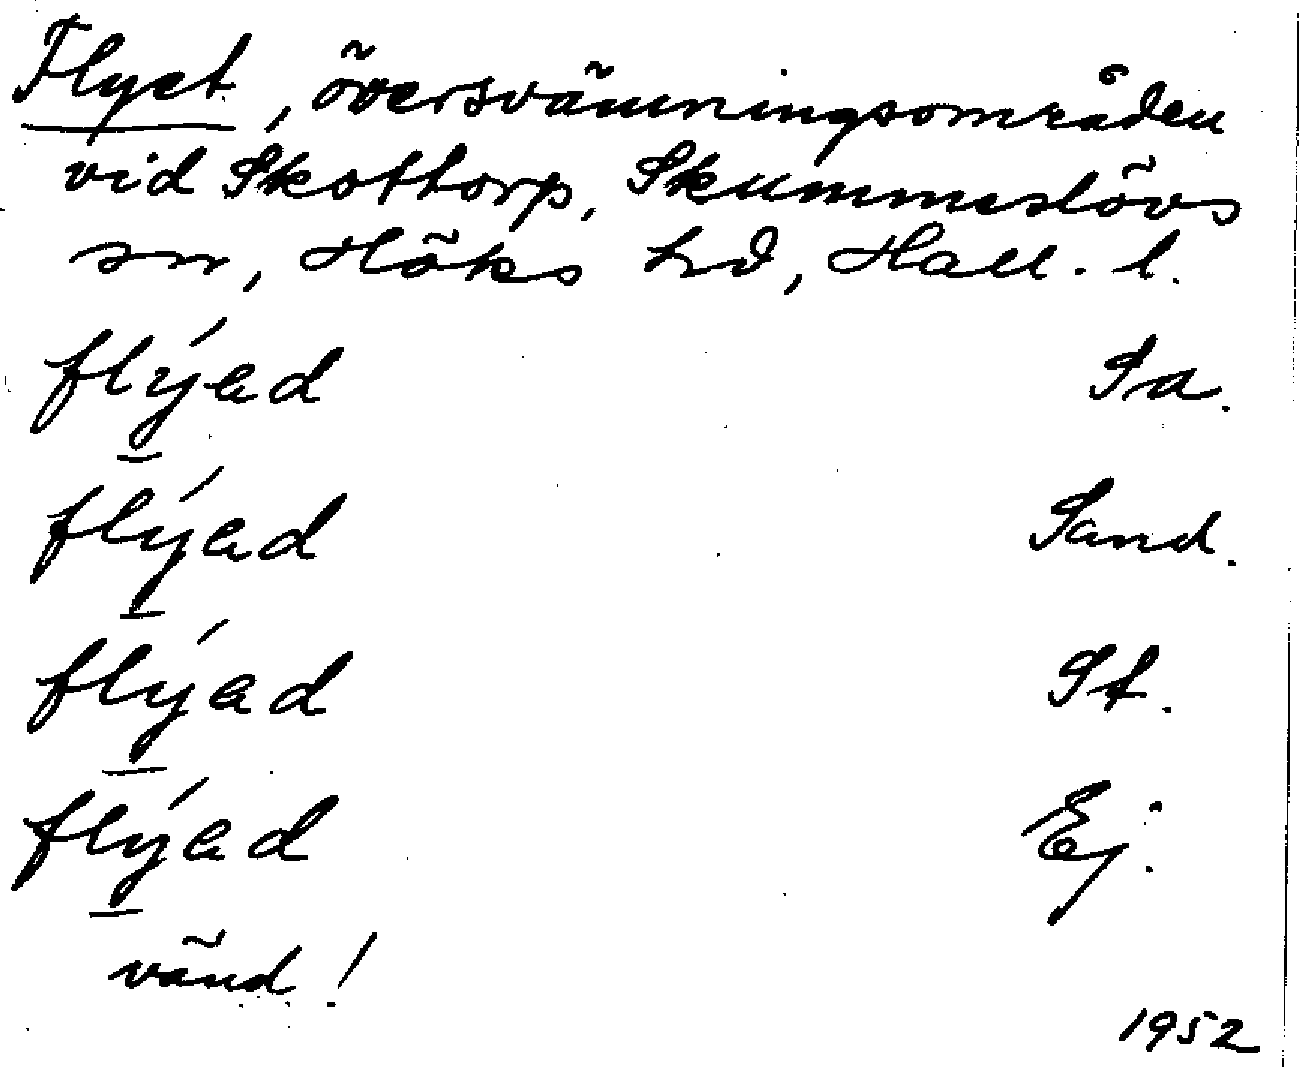 Flyet, översvämningsområden
vid Skottorp, Skummeslövs
sn, Höks hd, Hall. l.
flýad Sa.
flýad Sand.
flýad St.
flýad Ej.
vänd!
1952